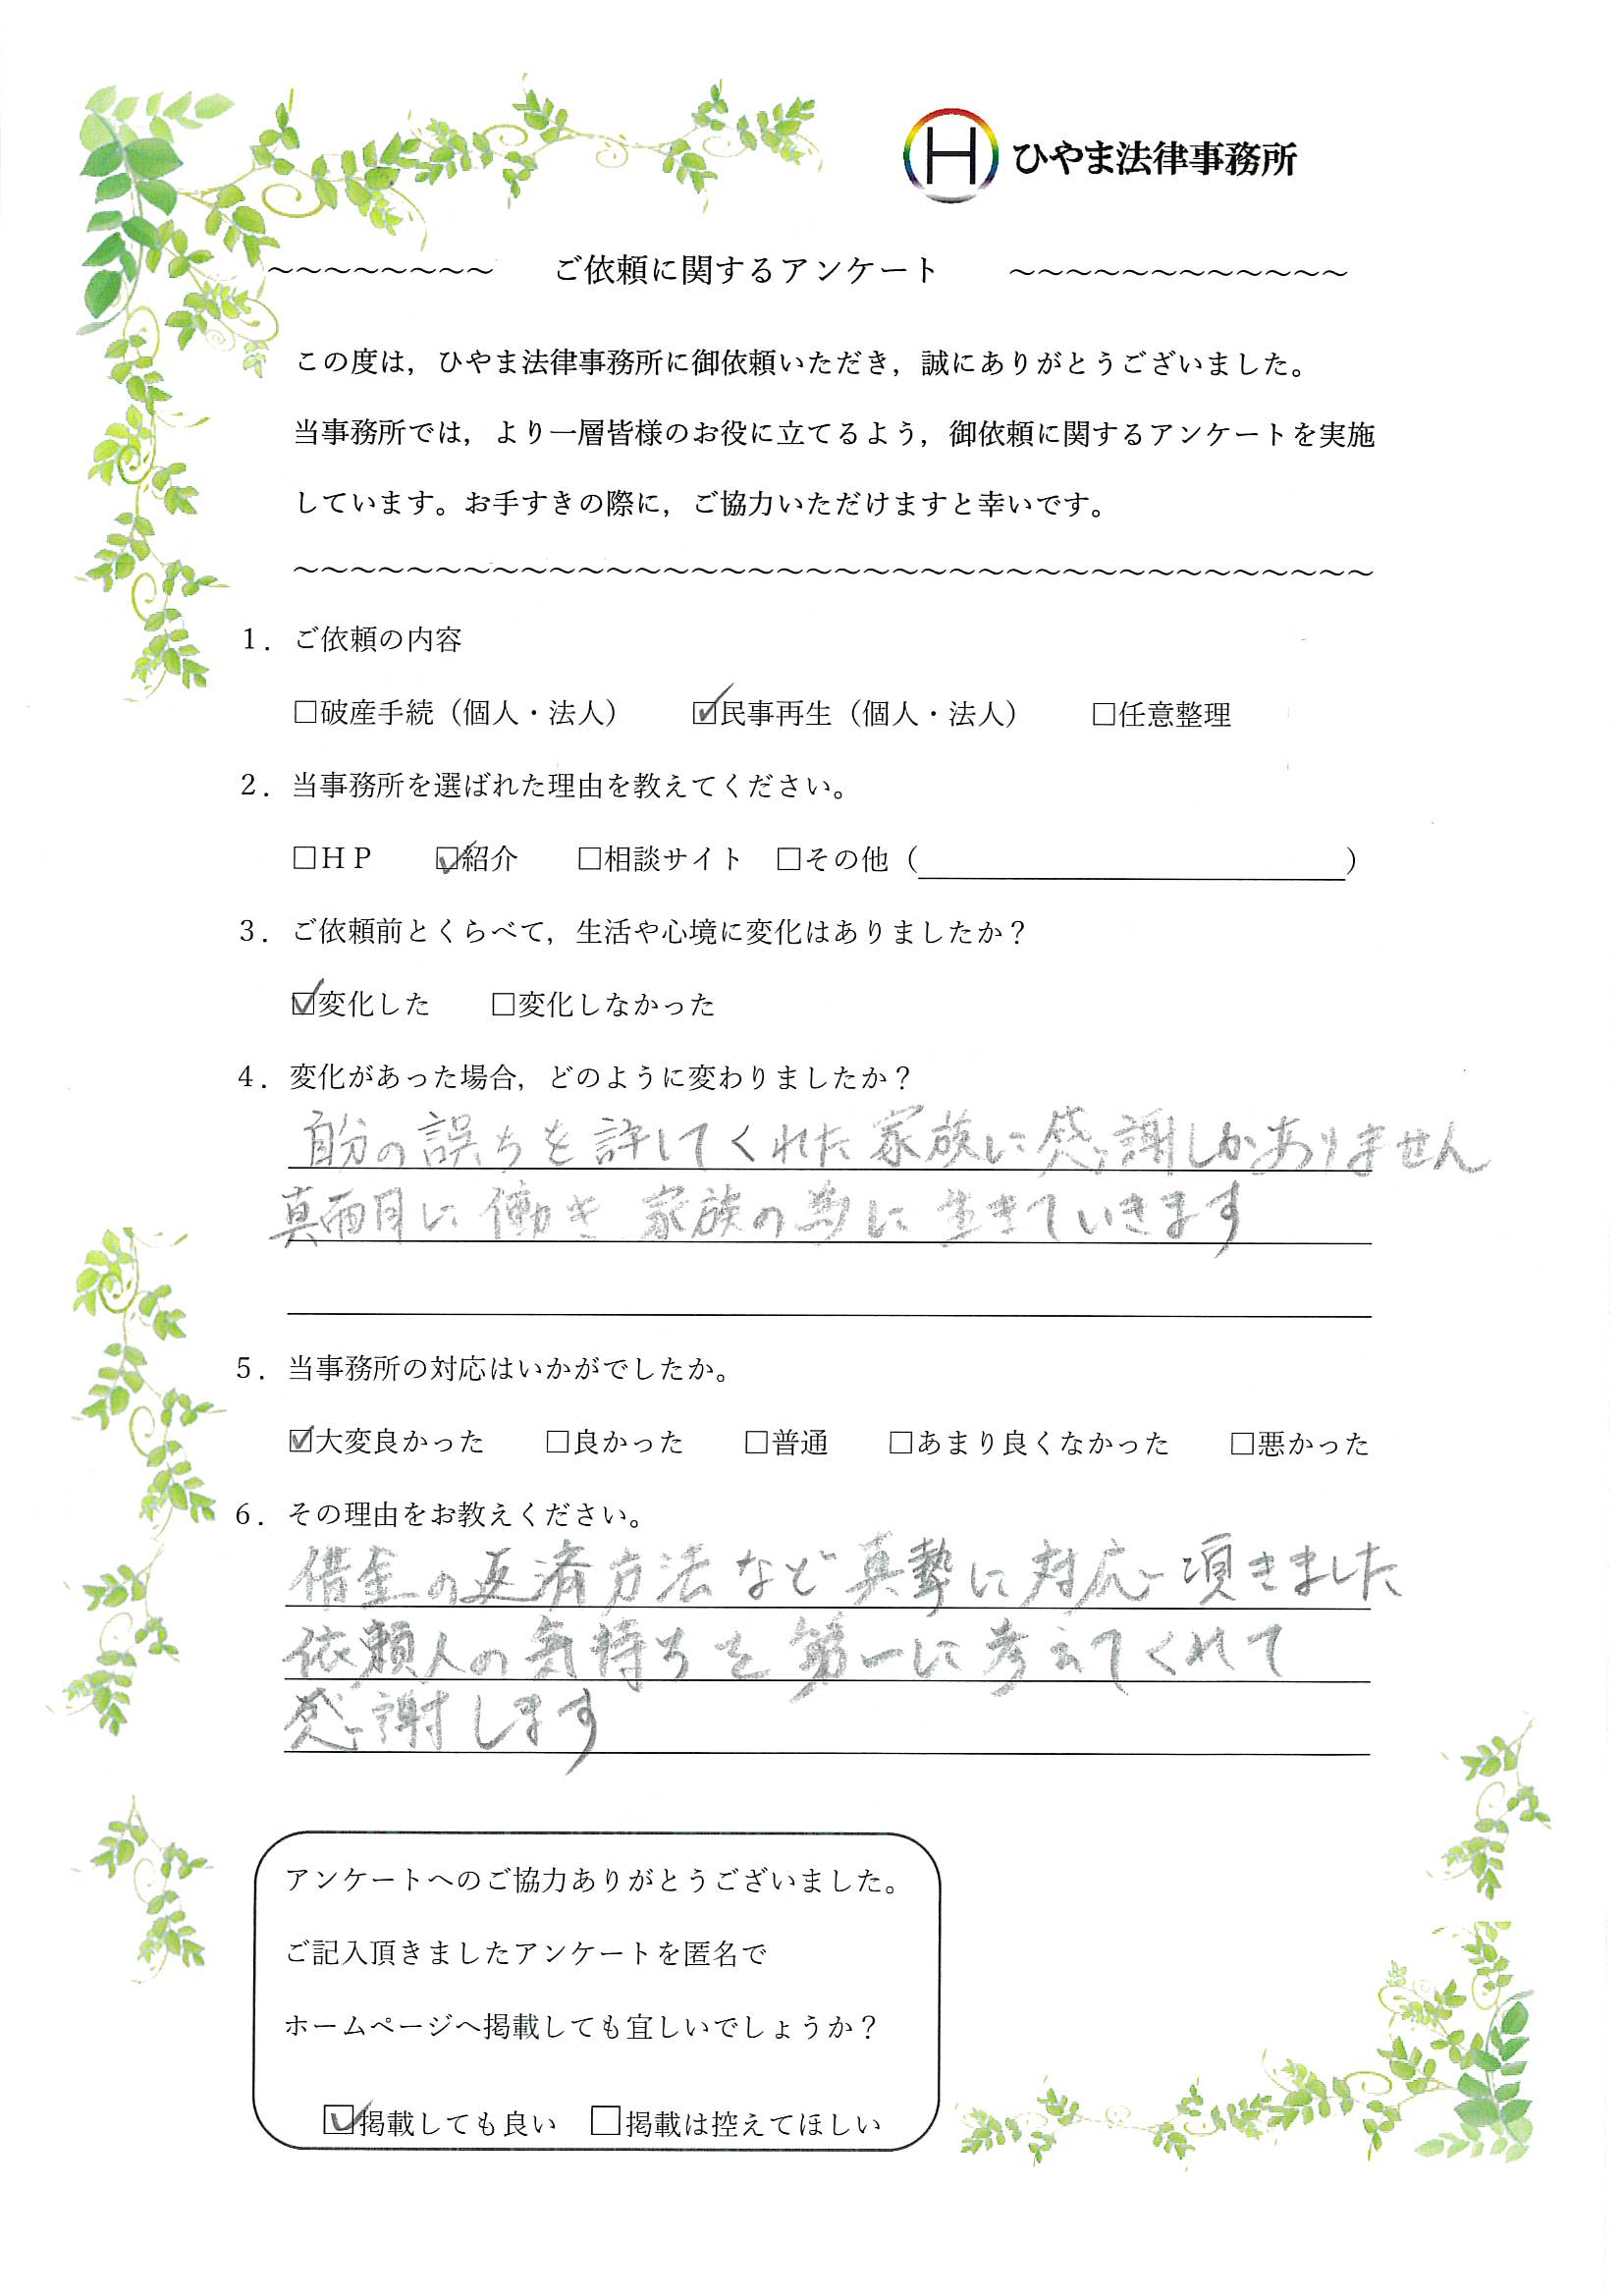 H ひやま法律事務所
～～～～～～～～ ご依頼に関するアンケート ～～～～～～～～～～～～
この度は，ひやま法律事務所に御依頼いただき，誠にありがとうございました。
当事務所では，より一層皆様のお役に立てるよう，御依頼に関するアンケートを実施
しています。お手すきの際に，ご協力いただけますと幸いです。
～～～～～～～～～～～～～～～～～～～～～～～～～～～～～～～～～～～～～～
１．ご依頼の内容
□破産手続（個人・法人） ☑民事再生（個人・法人） □任意整理
２．当事務所を選ばれた理由を教えてください。
□ＨＰ ☑紹介 □相談サイト □その他（ ）
３．ご依頼前とくらべて，生活や心境に変化はありましたか？
☑変化した □変化しなかった
４．変化があった場合，どのように変わりましたか？
自分の誤ちを許してくれた家族に感謝しかありません
真面目に働き 家族の為に生きていきます
５．当事務所の対応はいかがでしたか。
☑大変良かった □良かった □普通 □あまり良くなかった □悪かった
６．その理由をお教えください。
借金の返済方法など真摯に対応頂きました
依頼人の気持ちを第一に考えてくれて
感謝します
アンケートへのご協力ありがとうございました。
ご記入頂きましたアンケートを匿名で
ホームページへ掲載しても宜しいでしょうか？
☑掲載しても良い □掲載は控えてほしい